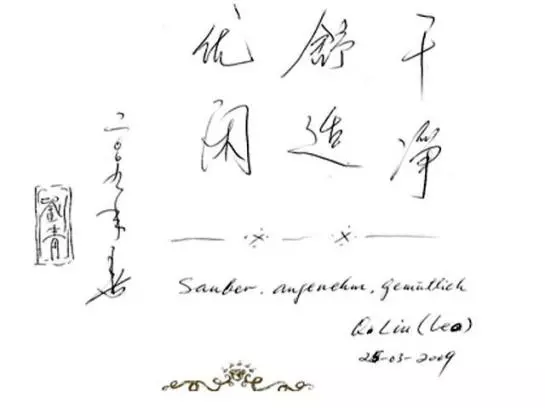 干净
舒适
优闲
二〇〇九年春
劉青
Sauber, angenehm, gemütlich
Q. Liu (Leo)
25-03-2009